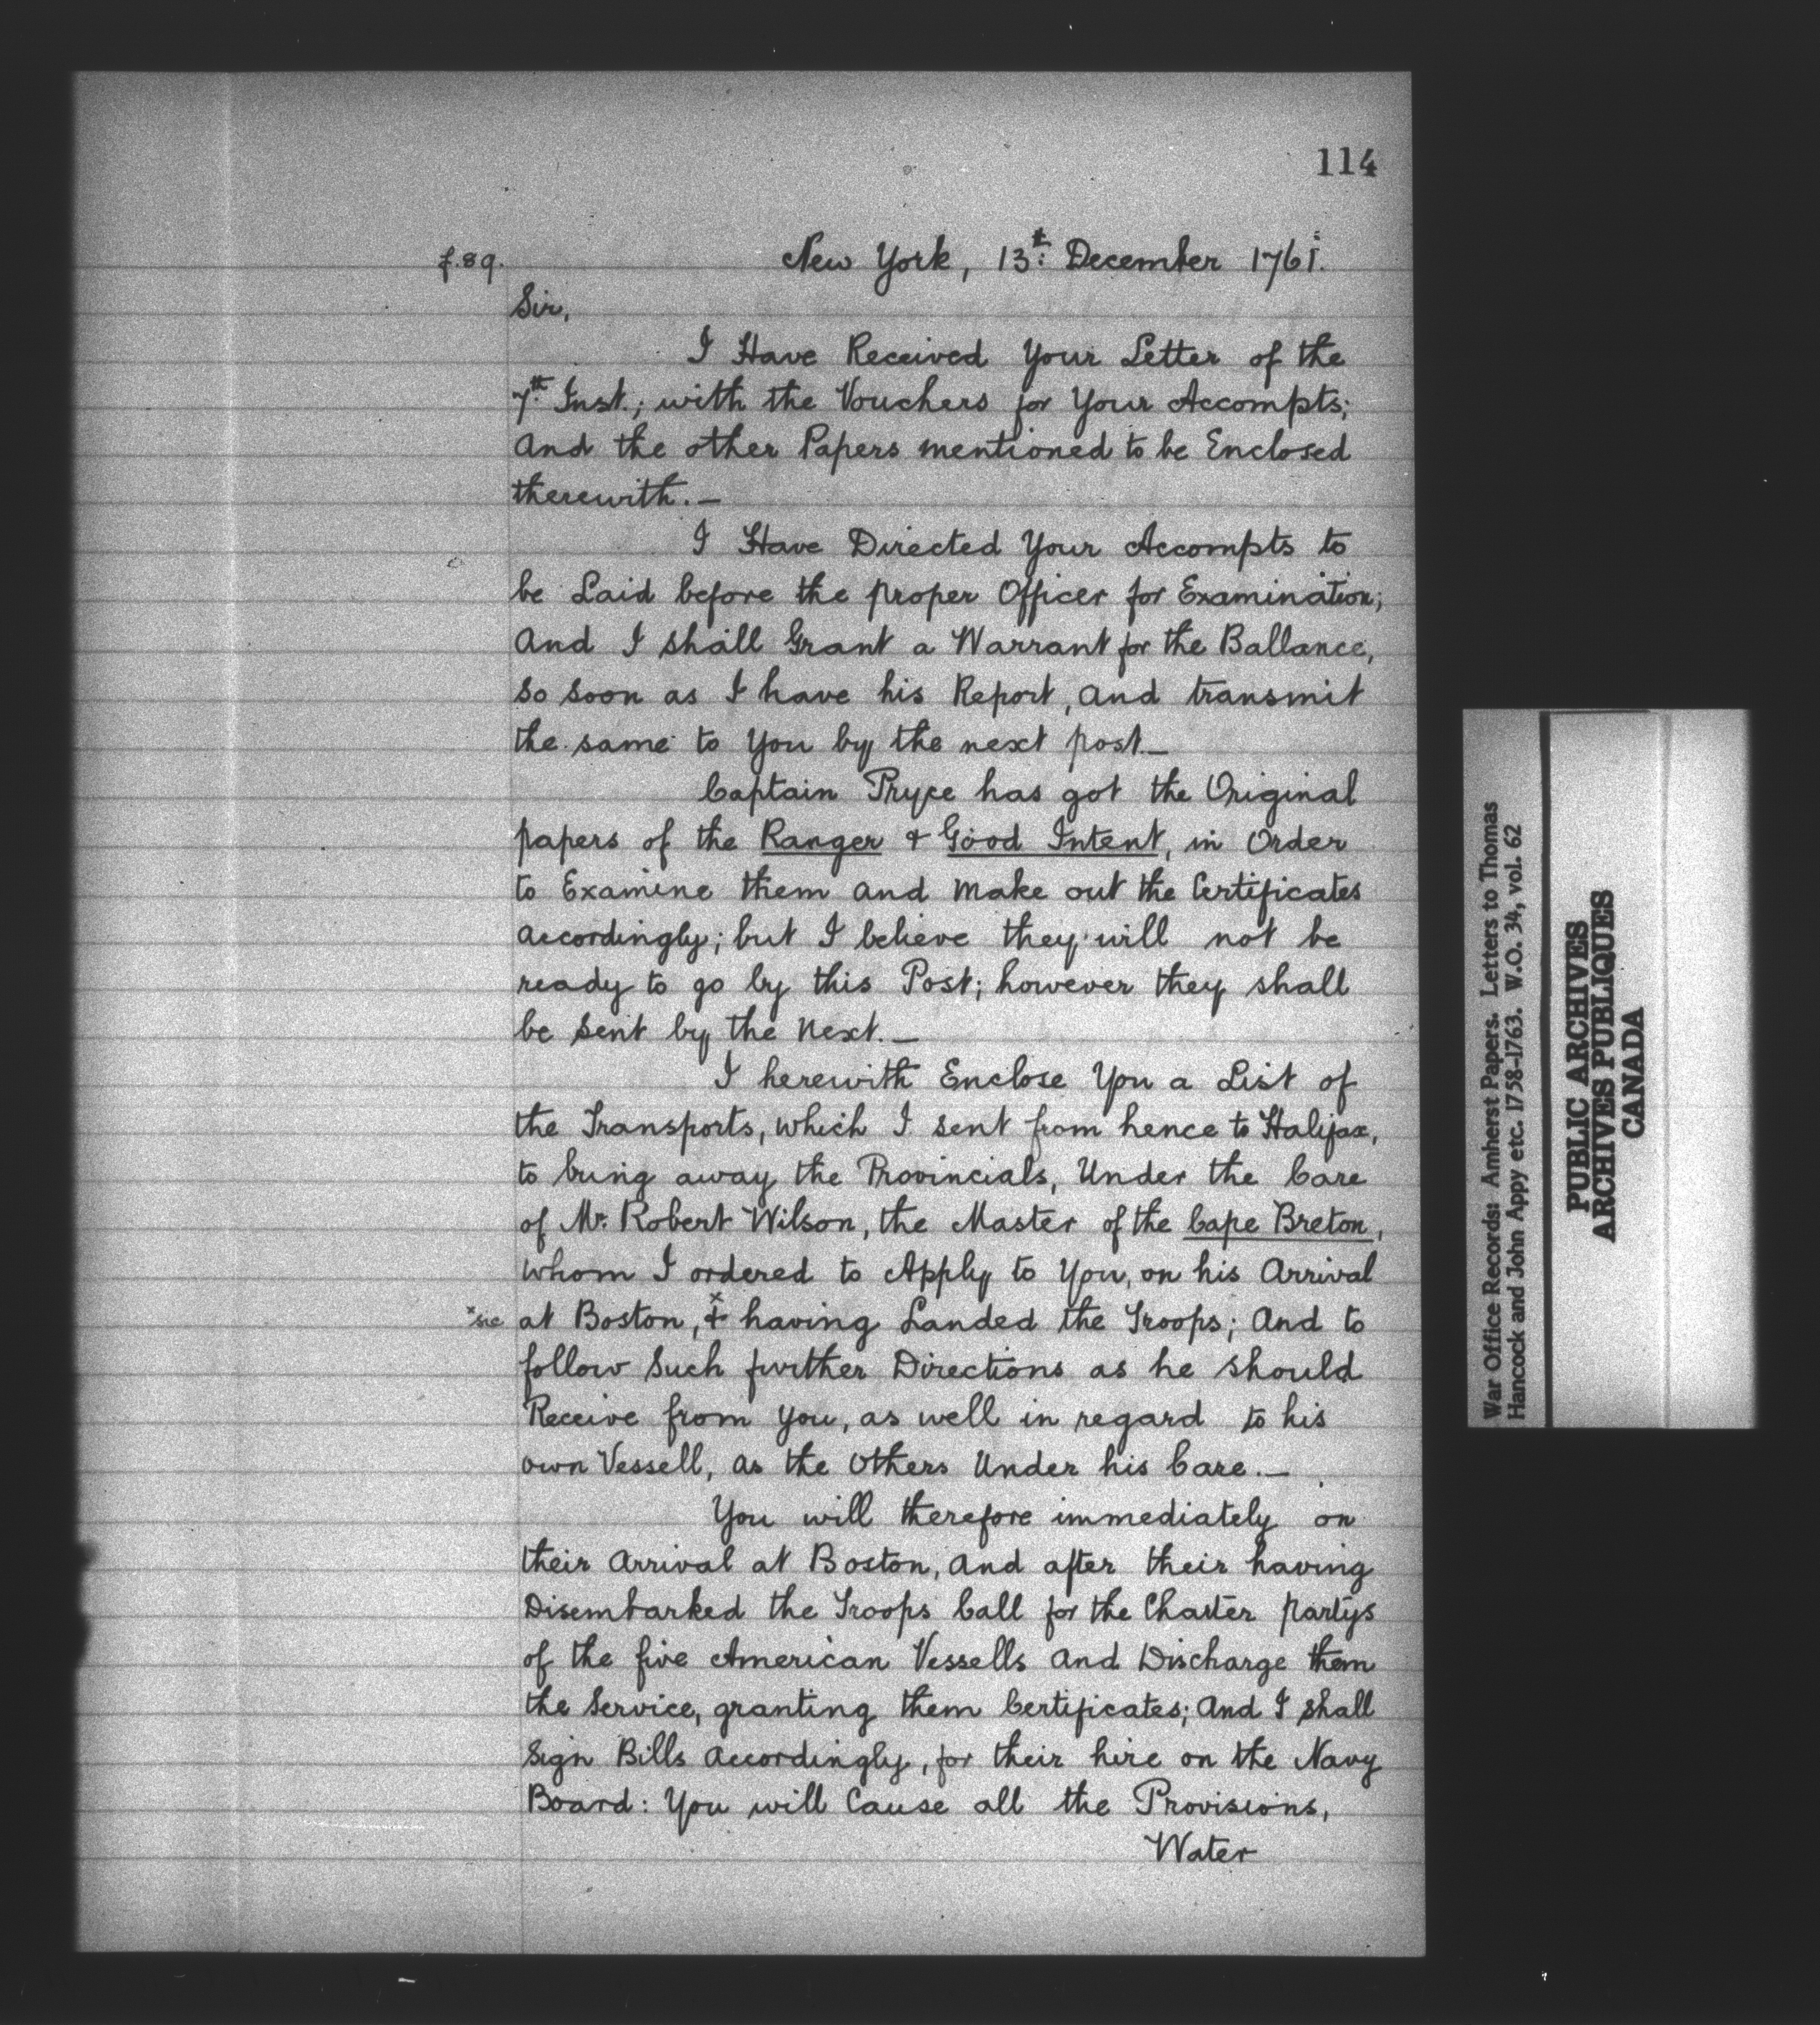 114
f.89. New York, 13th: December 1761.
Sir,
I Have Received Your Letter of the
7th Inst.; with the Vouchers for Your Accompts;
And the other Papers mentioned to be Enclosed
therewith.—
I Have Directed Your Accompts to
be Laid before the proper Officer for Examination;
And I shall Grant a Warrant for the Ballance,
so soon as I have his Report, and transmit
the same to You by the next post.—
Captain Pryce has got the Original
papers of the Ranger & Good Intent, in Order
to Examine them and make out the Certificates
accordingly; but I believe they will not be
ready to go by this Post; however they shall
be sent by the Next.—
I herewith Enclose You a List of
the Transports, which I sent from hence to Halifax,
to bring away the Provincials, Under the Care
of Mr. Robert Wilson, the Master of the Cape Breton,
whom I ordered to Apply to You, on his Arrival
x sic at Boston, &x having Landed the Troops; And to
follow Such further Directions as he should
Receive from You, as well in regard to his
own Vessell, as the Others Under his Care.—
You will therefore immediately on
their Arrival at Boston, and after their having
Disembarked the Troops Call for the Charter partys
of the five American Vessells and Discharge them
the Service, granting them Certificates; And I shall
Sign Bills accordingly, for their hire on the Navy
Board: You will Cause all the Provisions,
Water
War Office Records: Amherst Papers. Letters to Thomas
Hancock and John Appy etc. 1758-1763. W.O. 34, vol. 62
PUBLIC ARCHIVES
ARCHIVES PUBLIQUES
CANADA